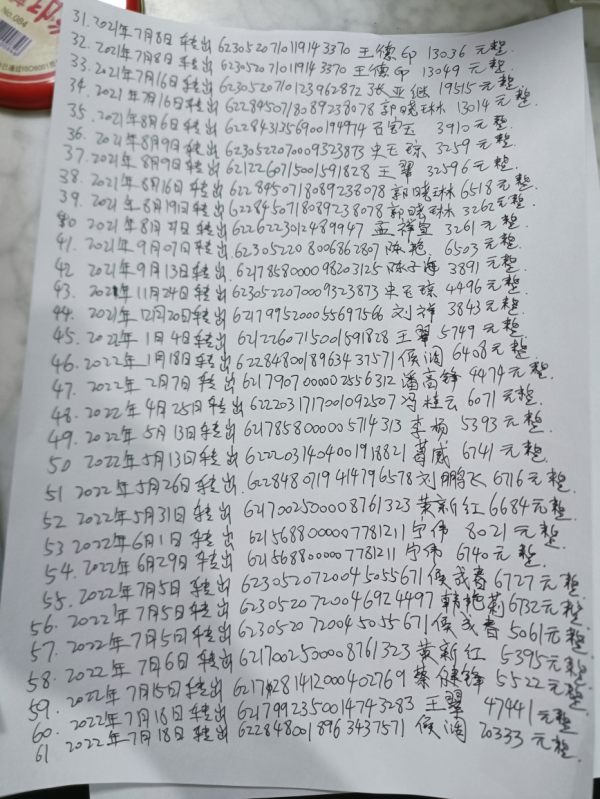 No.084
31. 2021年7月8日转出 6230520710119143370 王德印 13036 元整.
32. 2021年7月8日转出 6230520710119143370 王德印 13049 元整.
33. 2021年7月16日转出 6230520710123962872 张亚继 19515元整.
34. 2021年7月16日转出 6228450718089238078 郭晓琳 13014元整.
35. 2021年8月6日转出 6228431256900194974 石宝玉 3910元整.
36. 2021年8月9日转出 6230522070009323873 史玉琼 3259元整.
37. 2021年8月9日转出 6212260715001591828 王翠 32596元整.
38. 2021年8月16日转出 6228450718089238078 郭晓琳 6518元整.
39. 2021年8月19日转出 6228450718089238078 郭晓琳 3262元整.
40 2021年8月 日转出 6226223012489947 孟祥 3261元整.
41. 2021年9月07日转出 623052208006862807 陈艳 6503元整.
42 2021年9月13日转出 6217858000098203125 陈子海 3891元整.
43. 2021年11月24日转出 6230522070009323873 史玉琼 4496元整.
44. 2021年12月20日转出 6217995200055697566 刘祥 3843元整.
45. 2022年1月4日转出 6212260715001591828 王翠 5749元整.
46. 2022年1月18日转出 6228480018963437571 侯润 6408元整.
47. 2022年2月7日转出 6217907000002556312 潘高锋 4474元整.
48. 2022年4月25日转出 6222031717001092507 冯桂云 6071元整.
49. 2022年5月13日转出 6217858000005714313 李杨 5393元整.
50 2022年5月13日转出 6222031404001918821 葛威 6741元整.
51 2022年5月26日转出 6228480719414796578 刘鹏飞 6716元整.
52 2022年5月31日转出 6217002500008761323 黄新红 6684元整.
53 2022年6月1日转出 6215688000007781211 宁伟 8021元整.
54. 2022年6月29日转出 6215688000007781211 宁伟 6740元整.
55. 2022年7月5日转出 6230520720045055671 侯成春 6727元整.
56. 2022年7月5日转出 6230520720046924497 韩艳菊 6732元整.
57. 2022年7月5日转出 6230520720045055671 侯成春 5061元整.
58. 2022年7月6日转出 6217002500008761323 黄新红 5395元整.
59. 2022年7月15日转出 6217281412000402769 蔡保锋 5522元整.
60. 2022年7月18日转出 6217992350014743283 王翠 47441元整.
61 2022年7月18日转出 6228480018963437571 侯润 20333元整.